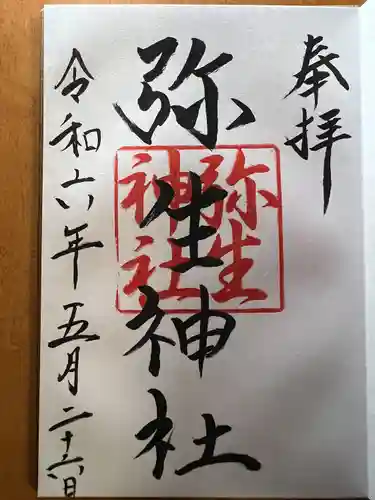 奉拝
弥生神社
弥生
神社
令和六年五月二十六日